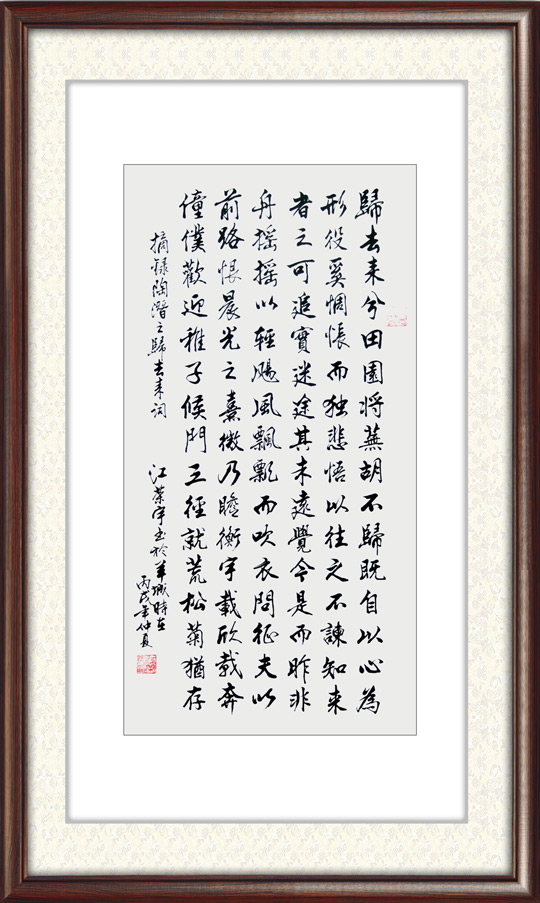 歸去来兮田園将蕪胡不歸既自以心為
形役奚惆悵而独悲悟以往之不諫知来
者之可追實迷途其未遠覺今是而昨非
舟摇摇以輕颺風飄飄而吹衣問征夫以
前路恨晨光之熹微乃瞻衡宇載欣載奔
僮僕歡迎稚子候門三徑就荒松菊猶存
摘録陶潛之歸去来词 江荣宇书於羊城時在
丙戌年仲夏